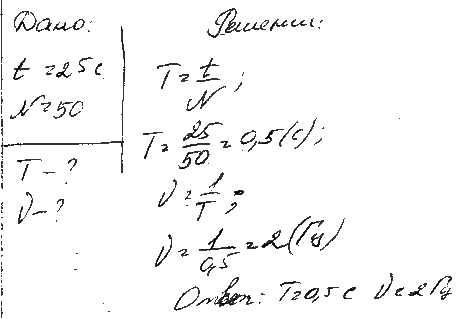 Дано:
t = 25 с
N = 50
T - ?
ν - ?
Решение:
T = t/N ;
T = 25/50 = 0,5 (с) ;
ν = 1/T ;
ν = 1/0,5 = 2 (Гц)
Ответ: T = 0,5 с ν = 2 Гц